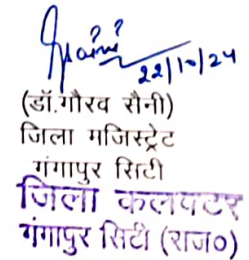 22/10/24
(डॉ.गौरव सैनी)
जिला मजिस्ट्रेट
गंगापुर सिटी
जिला कलक्टर
गंगापुर सिटी (राज०)